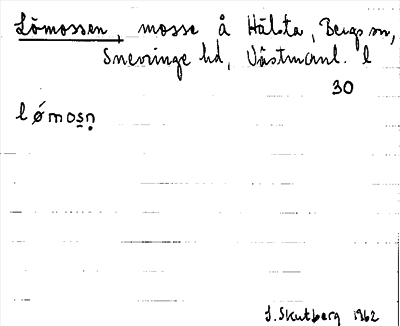 Lömossen, mosse å Hälsta, Bergs sn,
Snevringe hd, Västmanl. l
30
lǿmosn̥
S. Skutberg 1962